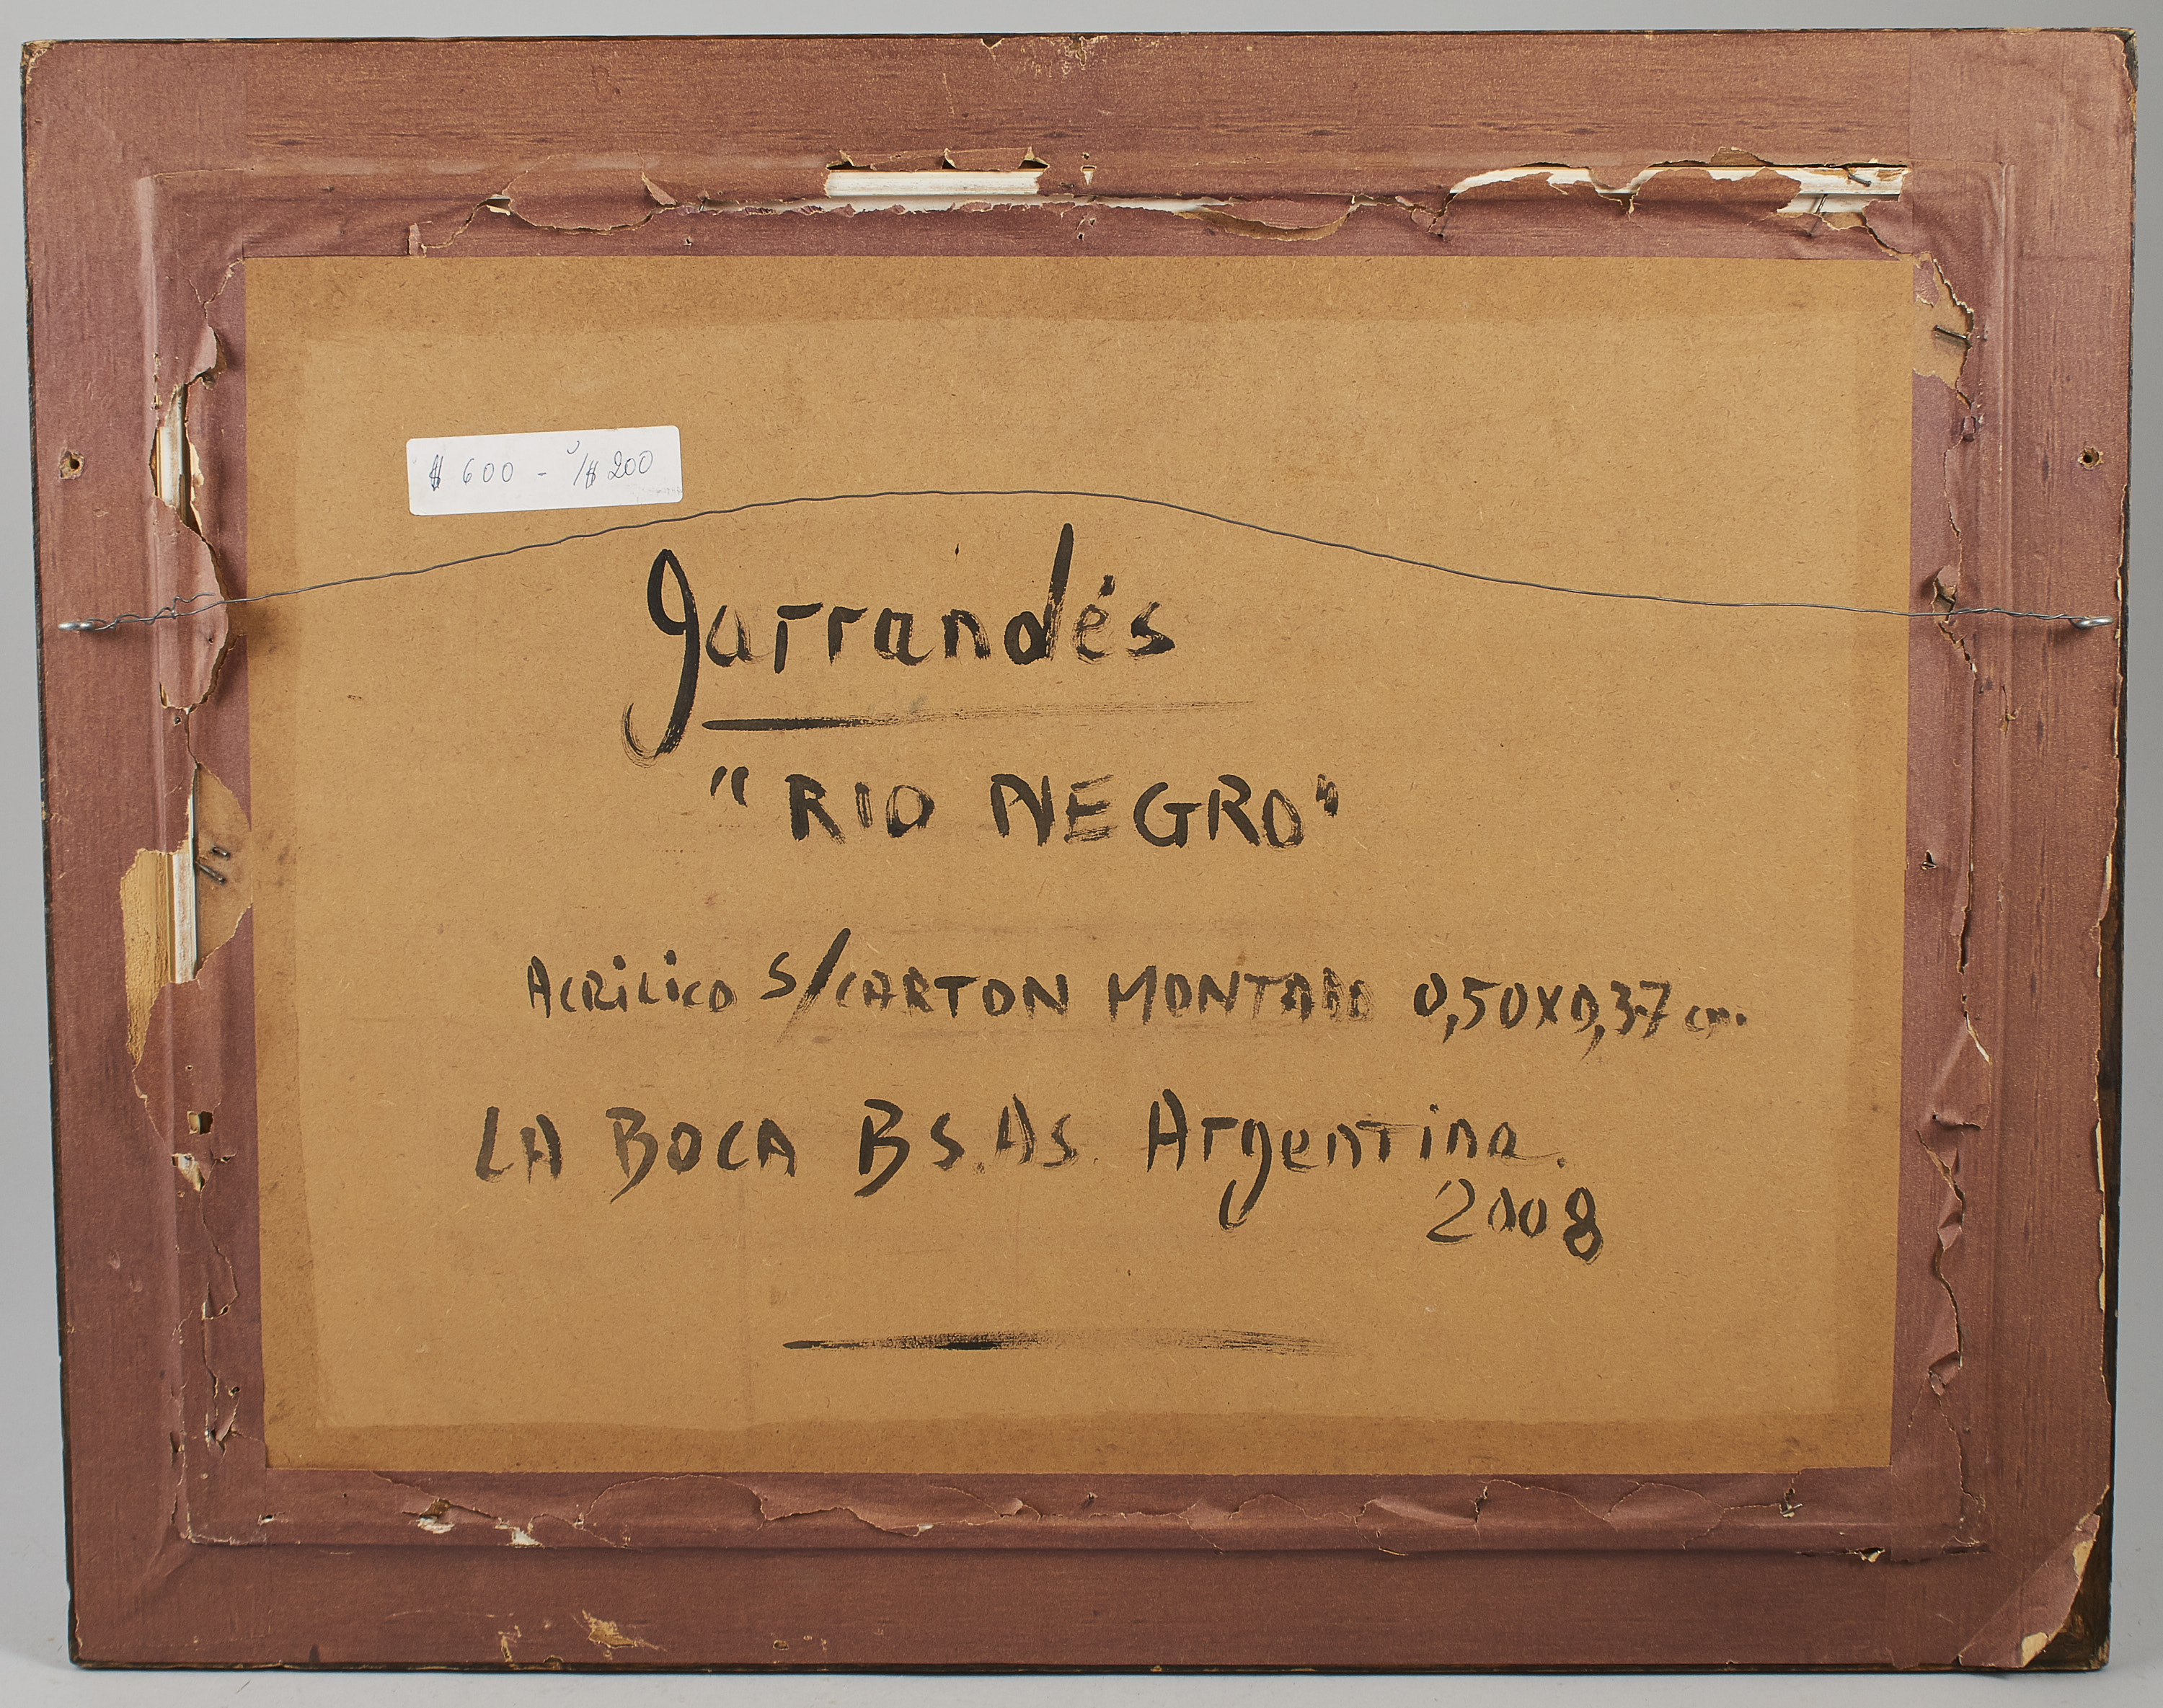 $ 600 - U/$ 200
Jarrandés
"RIO NEGRO"
ACRiLiCO S/CARTON MONTADO 0,50X0,37 cm.
LA BOCA BS.AS. Argentina.
2008